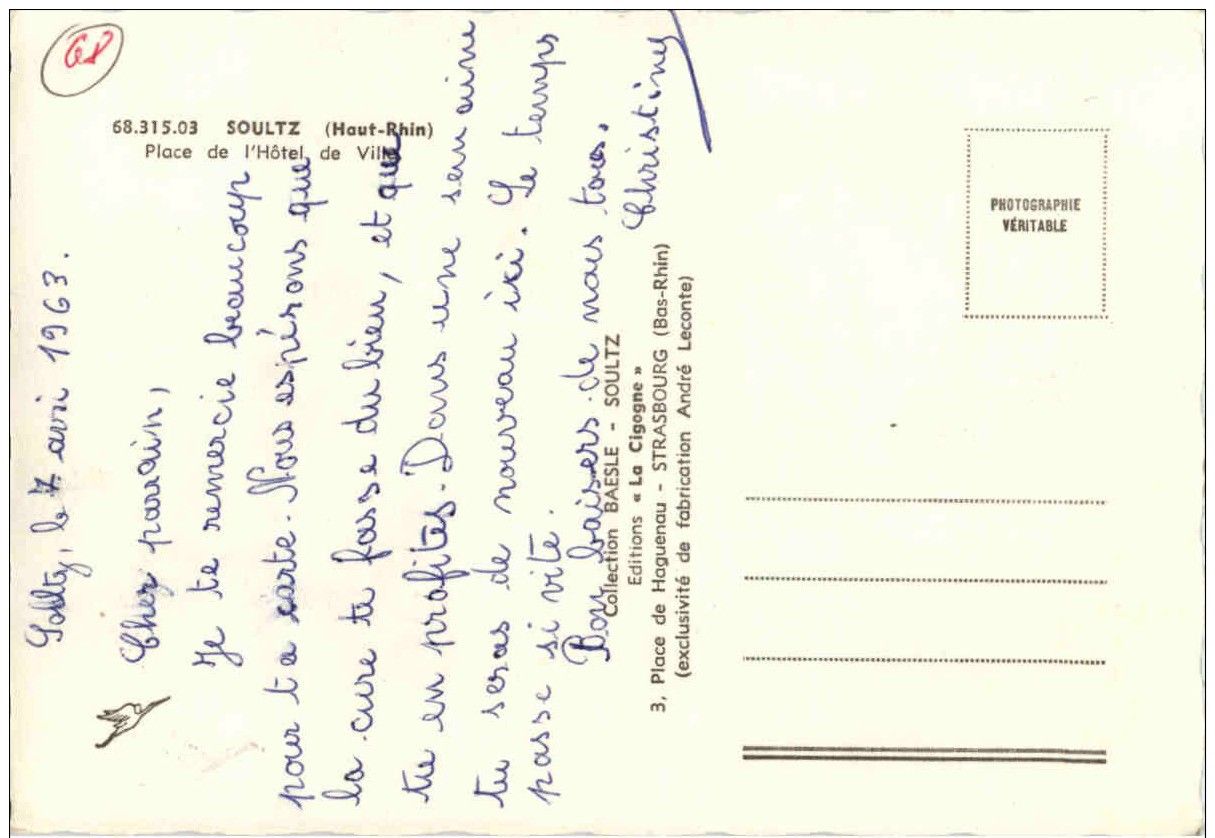 68
68.315.03 SOULTZ (Haut-Rhin)
Place de l'Hôtel de Ville
Soltz, le 7 avri 1963.
Cher parrain,
Je te remercie beaucoup
pour ta carte. Nous espérons que
la cure te fasse du bien, et que
tu en profites. Dans une semaine
tu seras de nouveau ici. Le temps
passe si vite.
Bon baisers de nous tous.
Christiney
Collection BAESLE - SOULTZ
Editions « La Cigogne »
3, Place de Haguenau - STRASBOURG (Bas-Rhin)
(exclusivité de fabrication André Leconte)
PHOTOGRAPHIE
VÉRITABLE